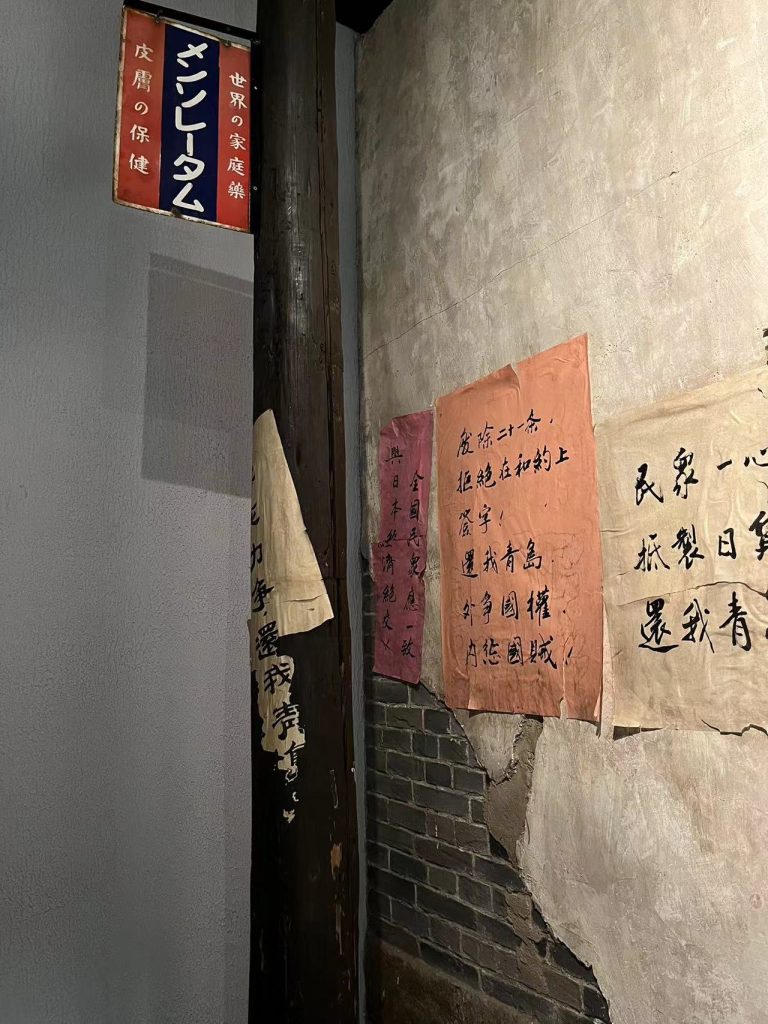 世界の家庭薬
メンソレータム
皮膚の保健
力争
還我青島
全國民衆應一致
與日本經濟絶交！
廢除二十一条，
拒絶在和約上
簽字！
還我青島．
外争國權．
内惩國賊！
民衆一心
抵製日貨
還我青